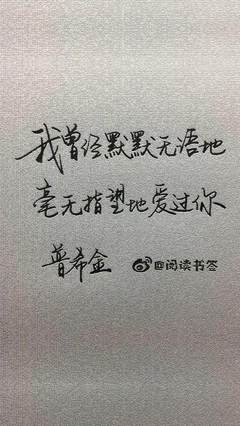 我曾经默默无语地
毫无指望地爱过你
普希金 @阅读书签